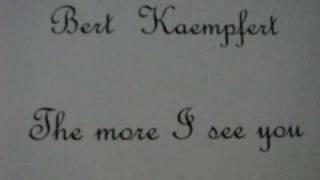 Bert Kaempfert
The more I see you